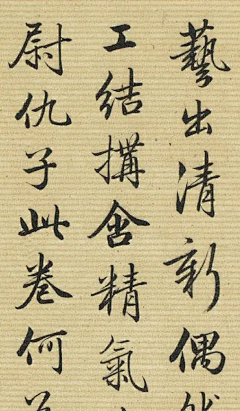 藝出清新偶
工結搆含精氣
尉仇子此卷何